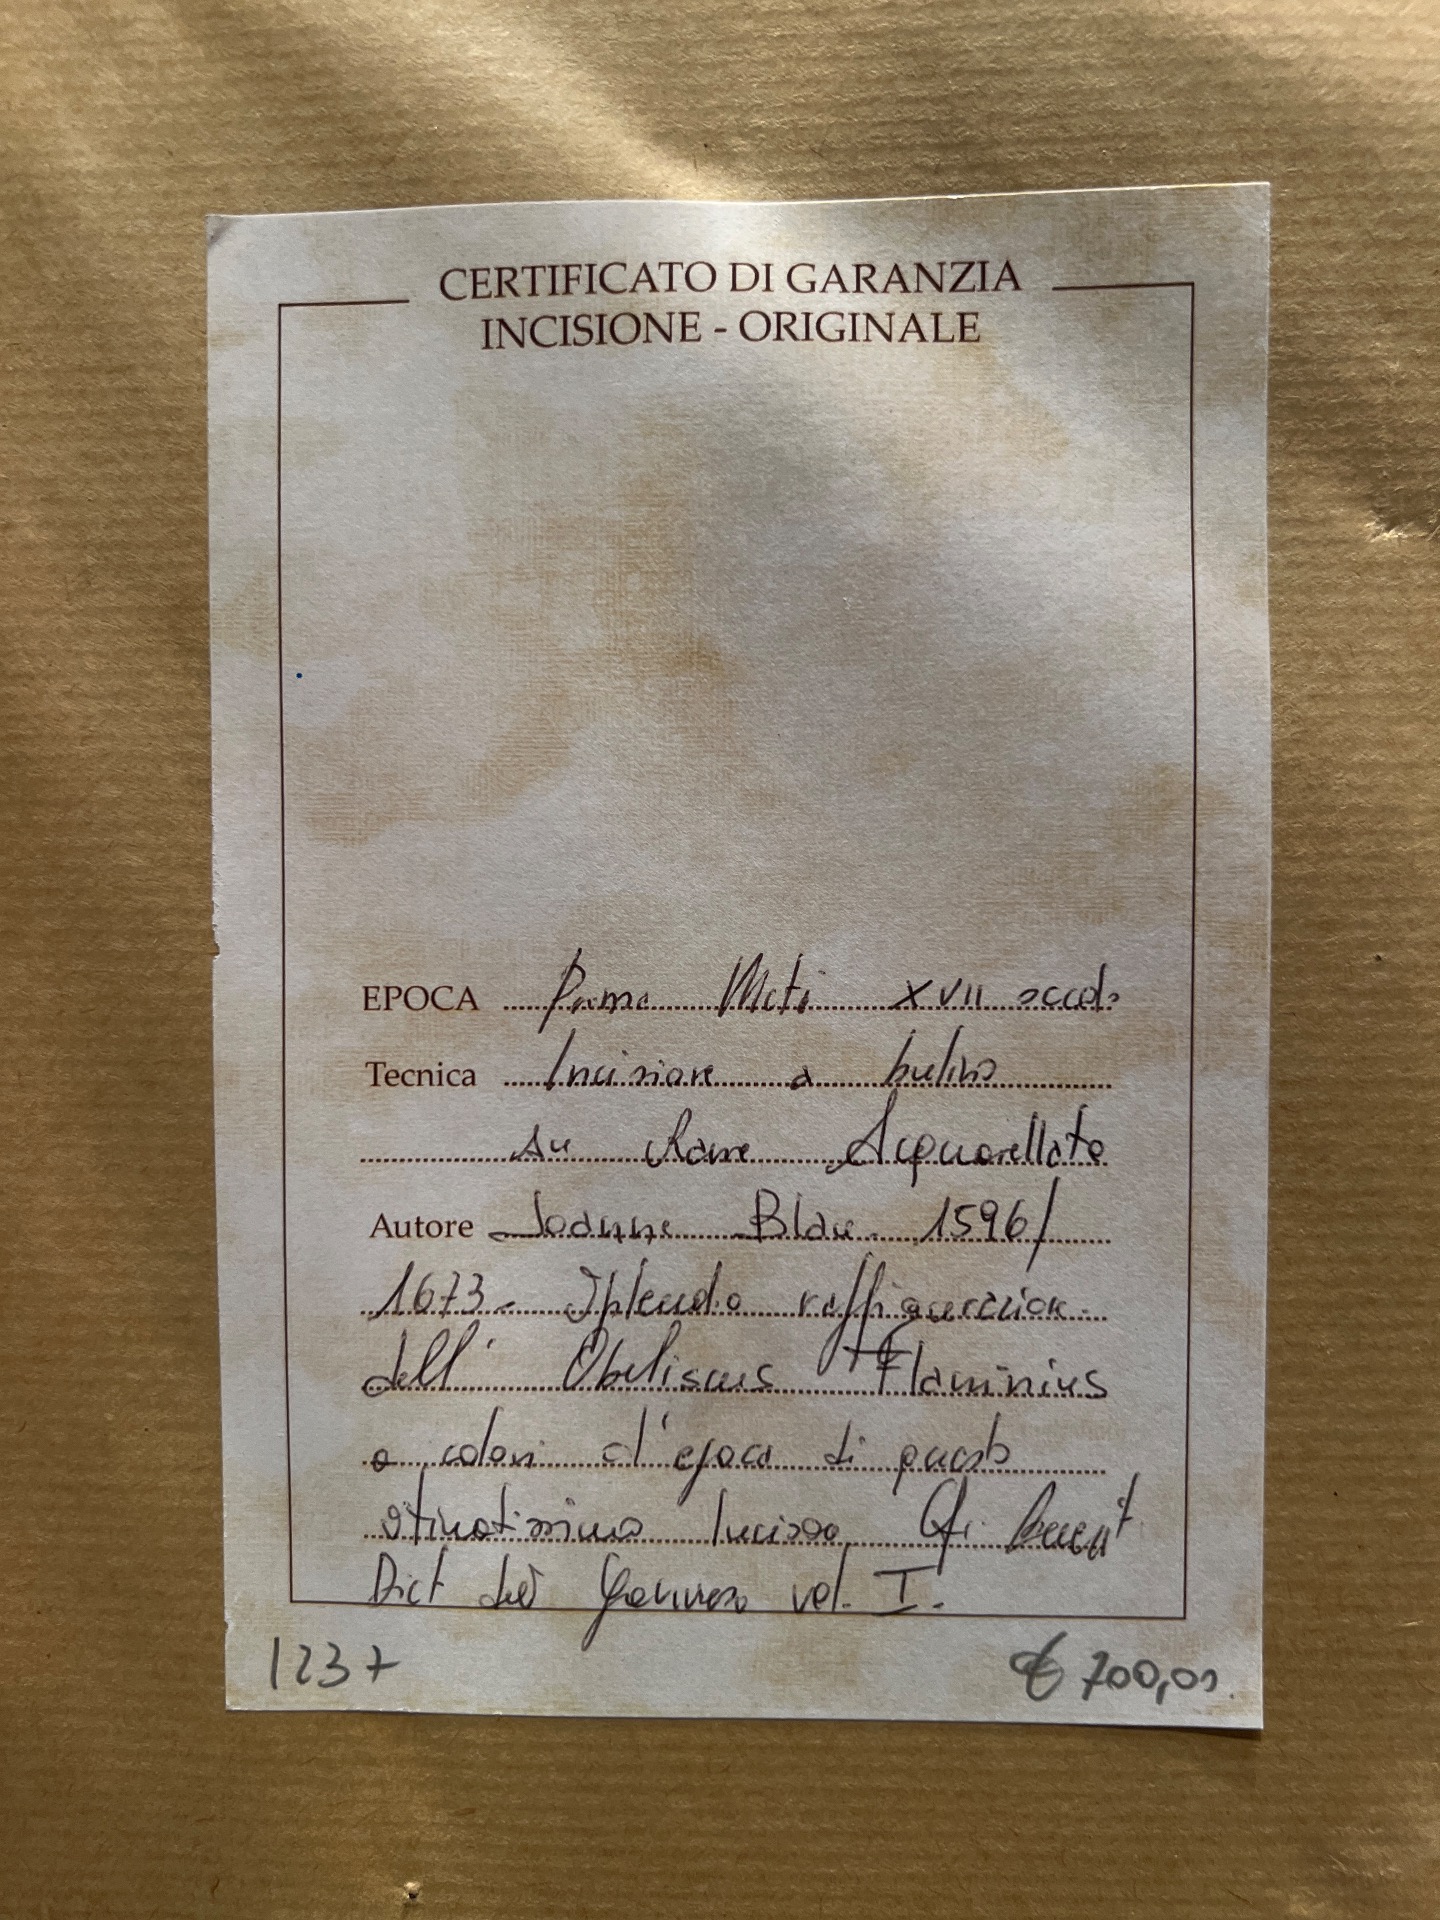 CERTIFICATO DI GARANZIA
INCISIONE - ORIGINALE
EPOCA Prima Metà XVII secolo
Tecnica Incisione a bulino
su Rame Acquarellato
Autore Joanne Blau. 1596/
1673 - Splendida raffigurazione
dell' Obeliscus Flaminius
a colori d'epoca di questo
stimatissimo Incisore. Cfr. Benezit
Dict vol. I.
1237
€ 700,00